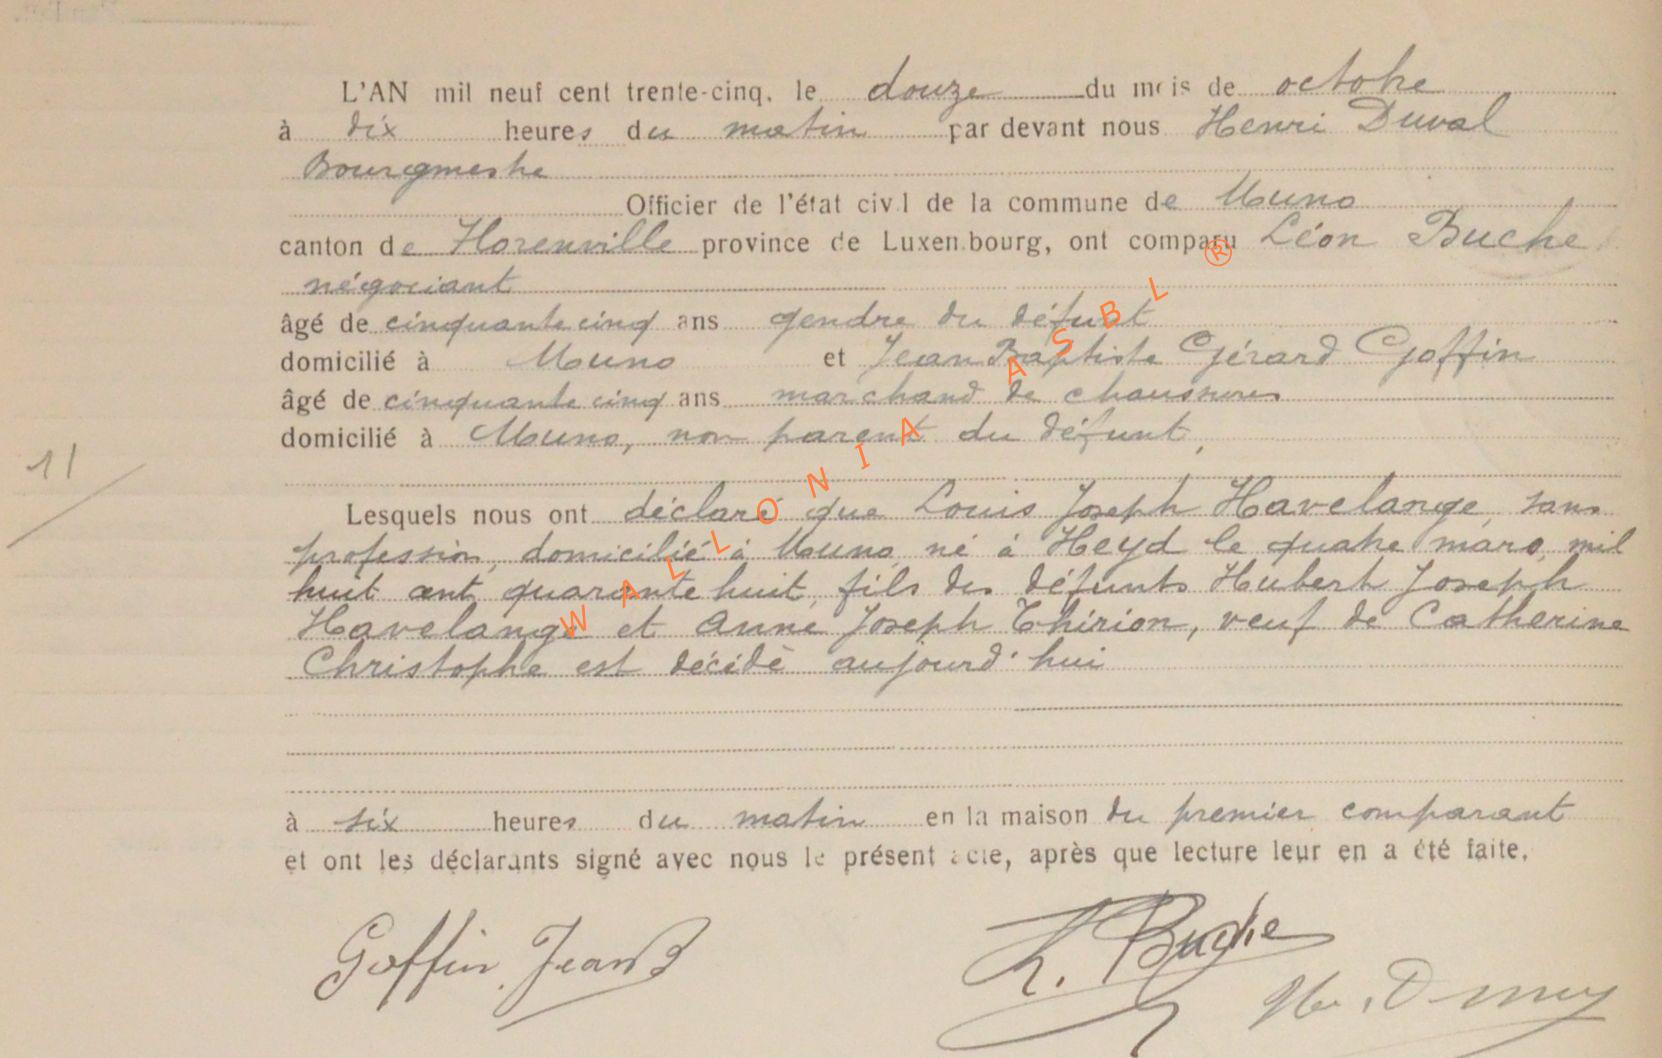 L'AN mil neuf cent trente-cinq, le douze du mois de octobre
à dix heures du matin par devant nous Henri Duval
Bourgmestre
Officier de l'état civil de la commune de Muno
canton de Florenville province de Luxembourg, ont comparu Léon Buche
négociant
âgé de cinquante cinq ans gendre du défunt
domicilié à Muno et Jean Baptiste Gérard Goffin
âgé de cinquante cinq ans marchand de chaussures
domicilié à Muno, non parent du défunt,
11
Lesquels nous ont déclaré que Louis Joseph Havelange, sans
profession, domicilié à Muno, né à Heyd le quatre mars mil
huit cent quarante huit, fils des défunts Hubert Joseph
Havelange et Anne Joseph Thirion, veuf de Catherine
Christophe est décédé aujourd'hui
à six heures du matin en la maison du premier comparant
et ont les déclarants signé avec nous le présent acte, après que lecture leur en a été faite.
Goffin, Jean B
L. Buche
WALLONIA ASBL ®